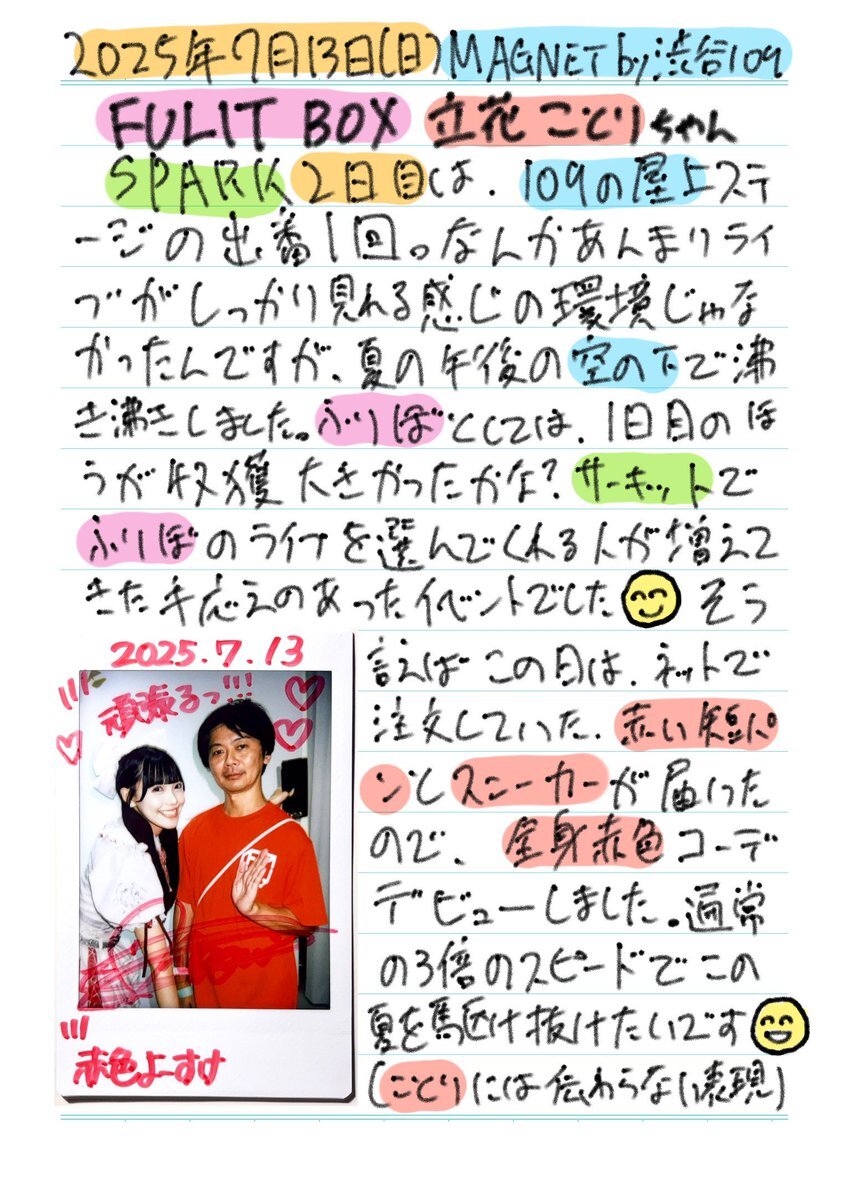 2025年7月13日(日)MAGNET by 渋谷109
FULIT BOX 立花ことりちゃん
SPARK 2日目は、109の屋上ステ
ージの出番1回。なんかあんまりライ
ブがしっかり見れる感じの環境じゃな
かったんですが、夏の午後の空の下で沸
き沸きしました。ふりぼとしては、1日目のほ
うが収獲大きかったかな?サーキットで
ふりぼのライブを選んでくれる人が増えて
きた手応えのあったイベントでした そう
言えばこの日は、ネットで
注文していた、赤い短パ
ンとスニーカーが届いた
ので、全身赤色コーデ
デビューしました。通常
の3倍のスピードでこの
夏を駆け抜けたいです
(ことりには伝わらない表現)
2025.7.13
頑張るっ!!!
赤色よーすけ